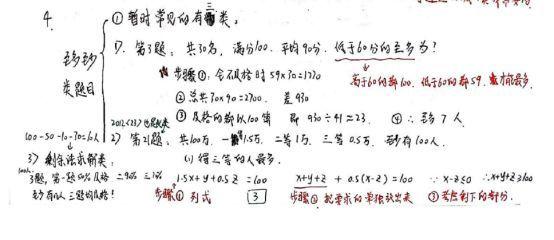 4.
至多至少
类题目
① 暂时常见的有三类。
1). 第3题: 共30名, 满分100. 平均90分. 低于60分的至多为?
高于60的都100. 低于60的都59. 才能最多.
步骤①, 令不及格时 59×30=1770
② 总共30×90=2700. 差930
③ 及格的都以100算 即 930÷41=23. ④ ∴ 至多 7 人.
2) 第21题: 共100万. 一等1.5万. 二等1万. 三等0.5万. 至少有100人.
100-50-10-30=10人
(1) 得三等的人最多.
3) 剩余法求解类:
3题, 第一题50%及格 二90%
1.5x+y+0.5z=100
x+y+z + 0.5(x-z)=100 ∵ x-z≤0 ∴x+y+z≥100
步骤① 列式
3
步骤② 把要求的单独放出来 ③ 考虑剩下的部分.